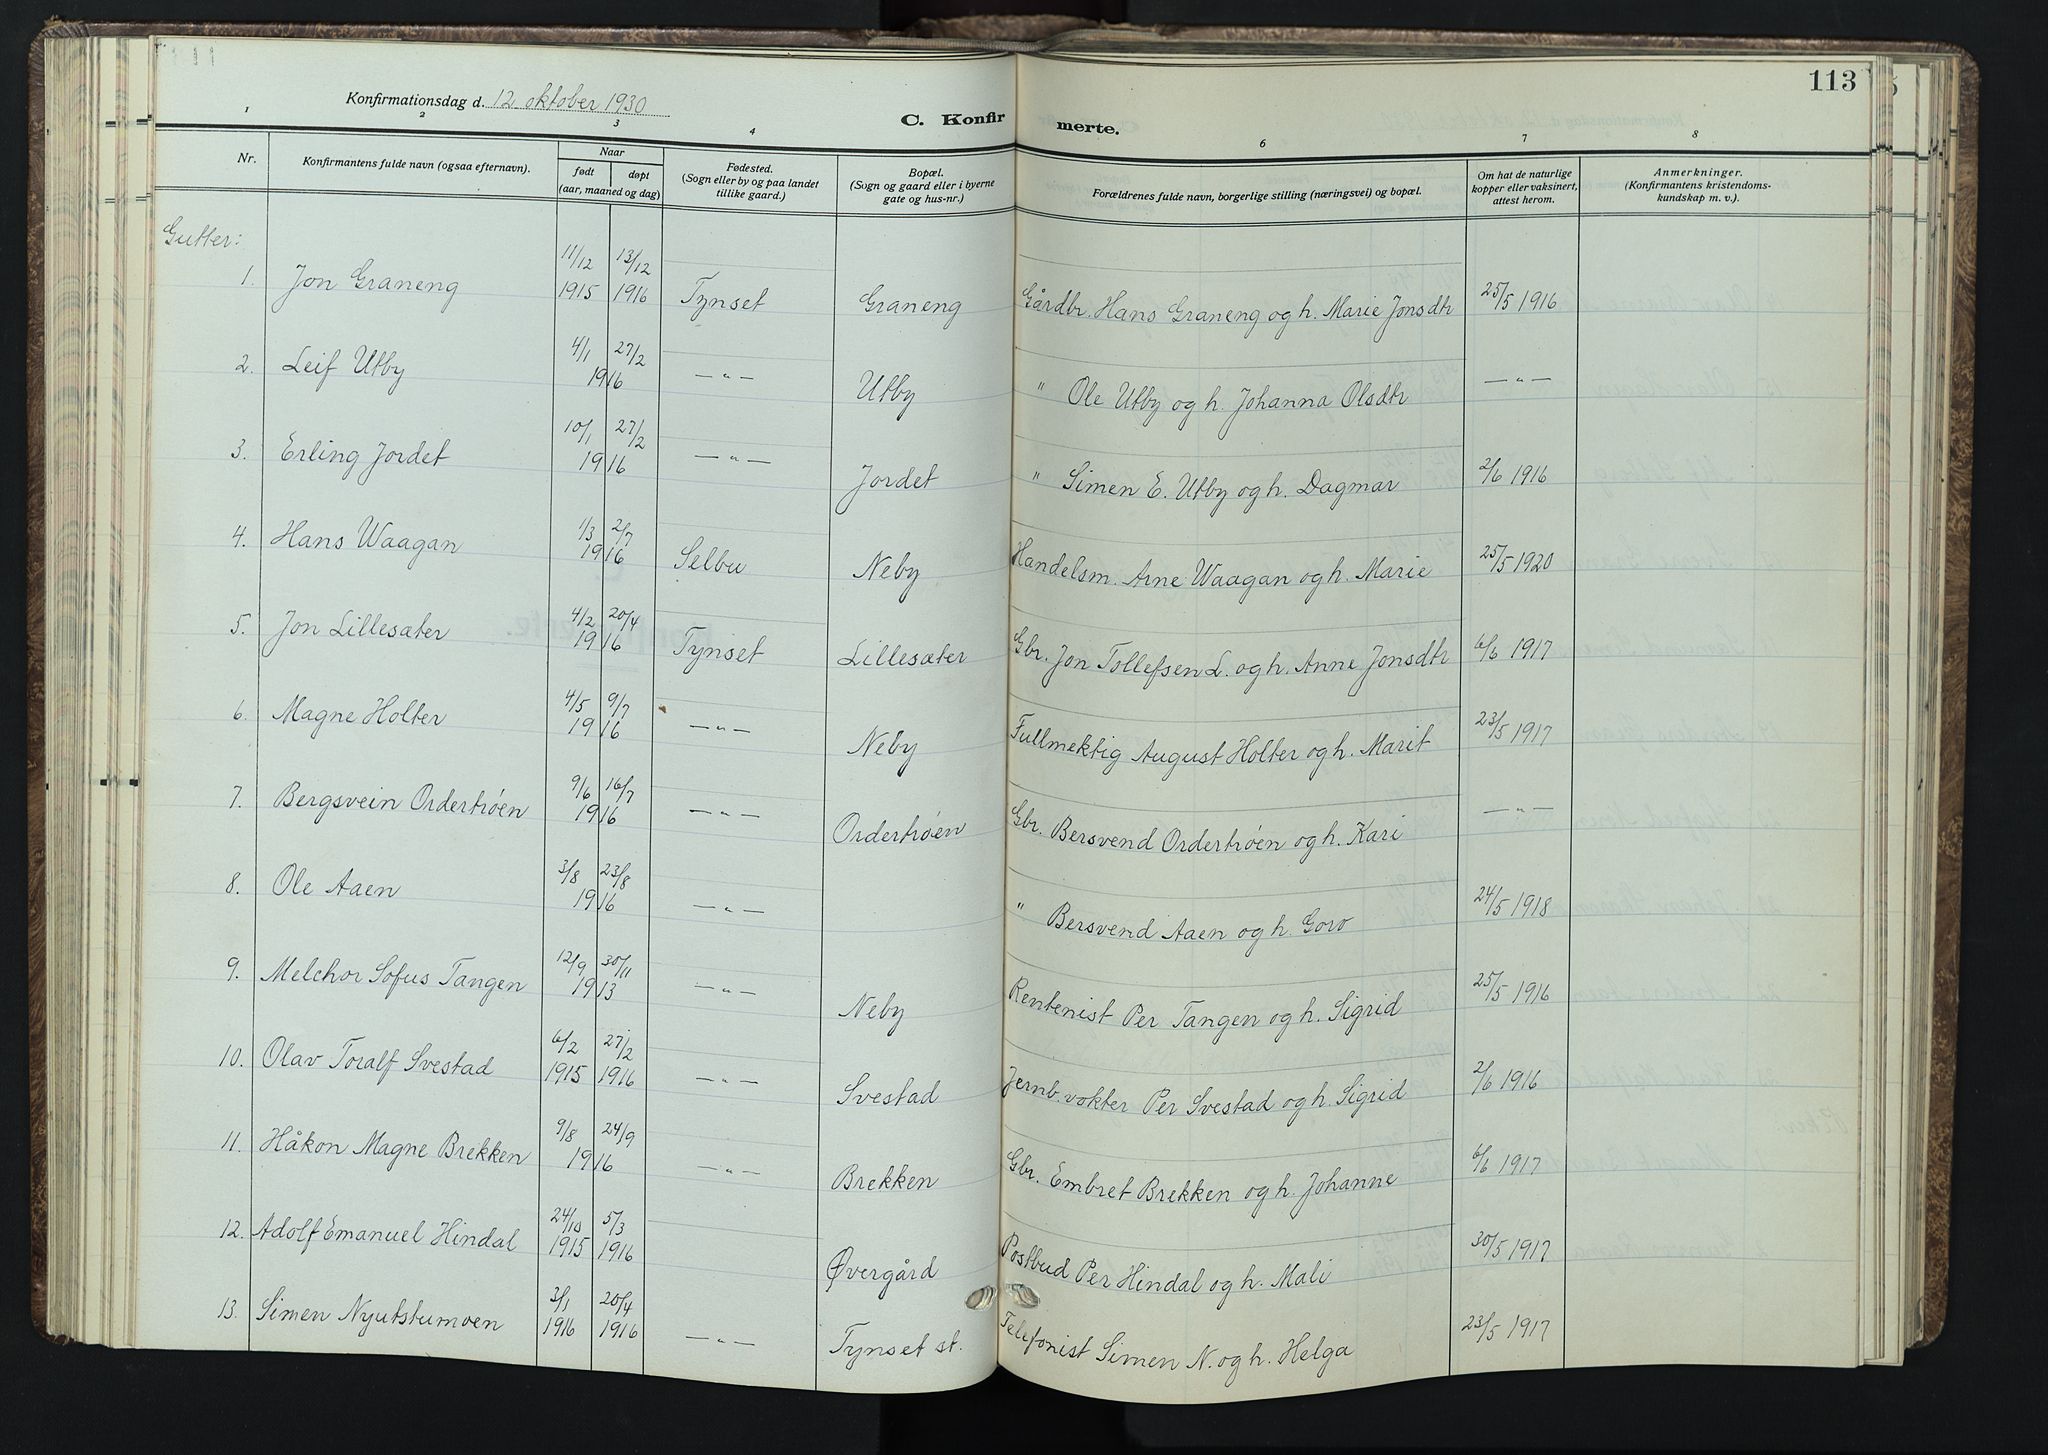 113
Konfirmationsdag d. 12 oktober 1930
C. Konfirmerte.
1 2 3 4 6 7 8
Nr.
Konfirmantens fulde navn (ogsaa efternavn).
Naar
født døpt
(aar, maaned og dag)
Fødested.
(Sogn eller by og paa landet
tillike gaard.)
Bopæl.
(Sogn og gaard eller i byerne
gate og hus-nr.)
Forældrenes fulde navn, borgerlige stilling (næringsvei) og bopæl.
Om hat de naturlige
kopper eller vaksinert,
attest herom.
Anmerkninger.
(Konfirmantens kristendoms-
kundskap m. v.).
Gutter:
1. Jon Graneng 11/12 1915 13/12 1916 Tynset Graneng Gårdbr. Hans Graneng og h. Marie Jonsdtr 25/5 1916
2. Leif Utby 4/1 27/2 1916 —"— Utby " Ole Utby og h. Johanna Olsdtr —"—
3. Erling Jordet 10/1 27/2 1916 —"— Jordet " Simen E. Utby og h. Dagmar 2/6 1916
4. Hans Waagan 1/3 2/7 1916 Selbu Neby Handelsm. Arne Waagan og h. Marie 25/5 1920
5. Jon Lillesæter 4/2 20/4 1916 Tynset Lillesæter Gbr. Jon Tollefsen L. og h. Anne Jonsdtr 6/6 1917
6. Magne Holter 4/5 9/7 1916 —"— Neby Fullmektig August Holter og h. Marit 23/5 1917
7. Bergsvein Ordertrøen 9/6 16/7 1916 —"— Ordertrøen Gbr. Bersvend Ordertrøen og h. Kari —"—
8. Ole Aaen 3/8 23/8 1916 —"— " Bersvend Aaen og h. Goro 24/5 1918
9. Melchor Sofus Tangen 12/9 30/11 1913 —"— Neby Rentenist Per Tangen og h. Sigrid 25/5 1916
10. Olav Toralf Svestad 6/2 1915 27/2 1916 —"— Svestad Jernb.vokter Per Svestad og h. Sigrid 2/6 1916
11. Håkon Magne Brekken 9/8 24/9 1916 —"— Brekken Gbr. Embret Brekken og h. Johanne 6/6 1917
12. Adolf Emanuel Hindal 24/10 1915 5/3 1916 Øvergård Postbud Per Hindal og h. Mali 30/5 1917
13. Simen Nyutstumoen 3/1 1916 20/4 1916 —"— Tynset st. Telefonist Simen N. og h. Helga 23/5 1917